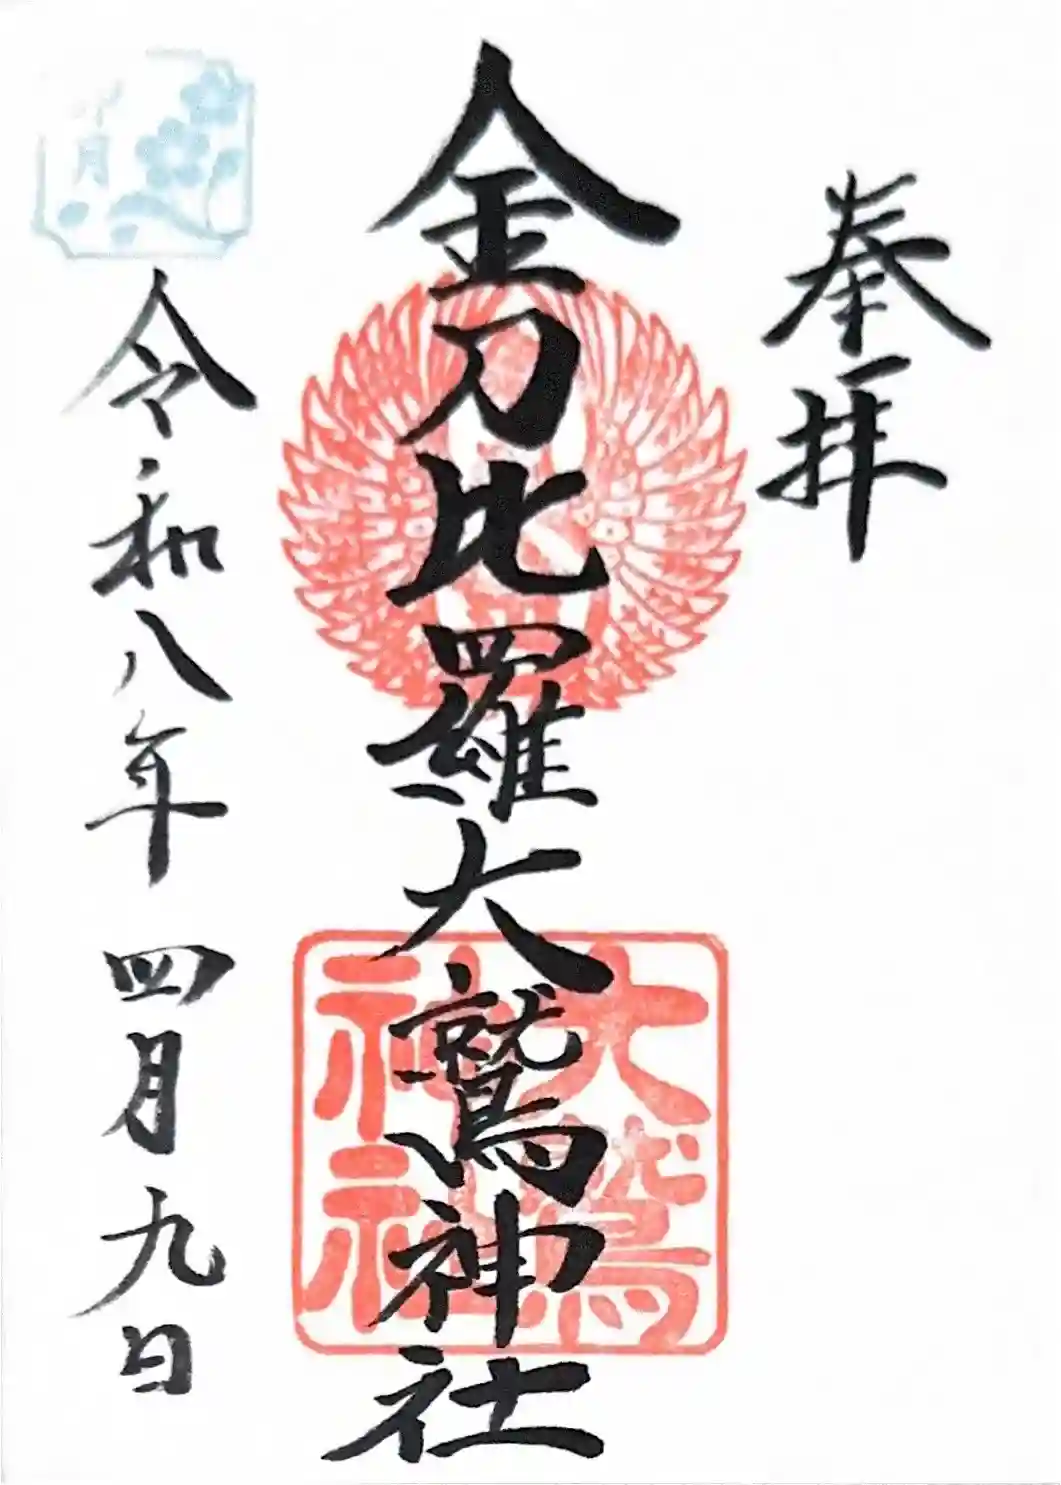 奉拝
金刀比羅大鷲神社
大鷲
神社
令和八年 四月九日